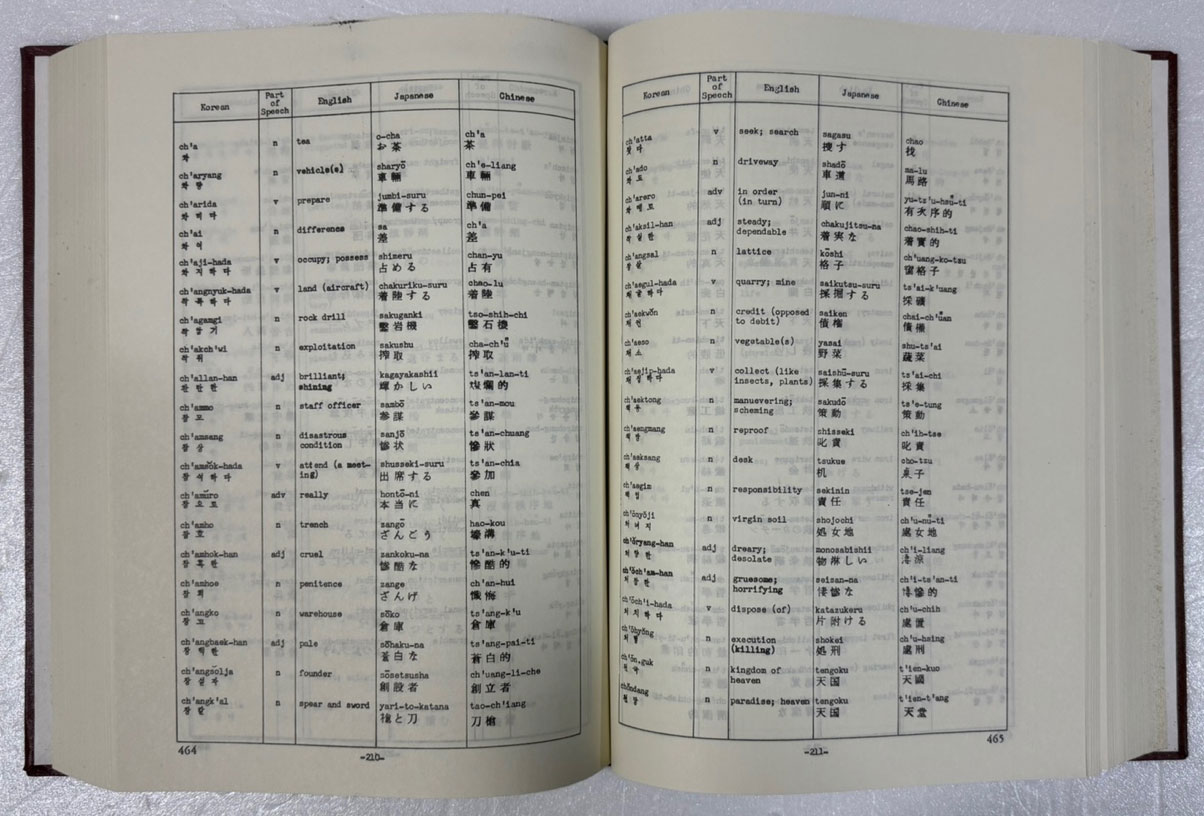 Korean Part of Speech English Japanese Chinese
ch'a n tea o-cha ch'a
차 お茶 茶
ch'aryang n vehicle(s) sharyō ch'e-liang
차량 車輛 車輛
ch'arida v prepare jumbi-suru chun-pei
차리다 準備する 準備
ch'ai n difference sa ch'a
차이 差 差
ch'aji-hada v occupy; possess shimeru chan-yu
차지하다 占める 占有
ch'angnyuk-hada v land (aircraft) chakuriku-suru chao-lu
착륙하다 着陸する 着陸
ch'agamgi n rock drill sakuganki tso-shih-chi
착암기 鑿岩機 鑿石機
ch'akch'wi n exploitation sakushu cha-ch'ü
착취 搾取 搾取
ch'allan-han adj brilliant; shining kagayakashii ts'an-lan-ti
찬란한 輝かしい 燦爛的
ch'ammo n staff officer sambō ts'an-mou
참모 参謀 參謀
ch'amsang n disastrous condition sanjō ts'an-chuang
참상 惨状 慘狀
ch'amsŏk-hada v attend (a meeting) shusseki-suru ts'an-chia
참석하다 出席する 參加
ch'amŭro adv really hontō-ni chen
참으로 本当に 真
ch'amho n trench zangō hao-kou
참호 ざんごう 壕溝
ch'amhok-han adj cruel zankoku-na ts'an-k'u-ti
참혹한 惨酷な 慘酷的
ch'amhoe n penitence zange ch'an-hui
참회 ざんげ 懺悔
ch'angko n warehouse sōko ts'ang-k'u
창고 倉庫 倉庫
ch'angbaek-han adj pale sōhaku-na ts'ang-pai-ti
창백한 蒼白な 蒼白的
ch'angsŏlja n founder sōsetsusha ch'uang-li-che
창설자 創設者 創立者
ch'angk'al n spear and sword yari-to-katana tao-ch'iang
창칼 槍と刀 刀槍
464
-210-
Korean Part of Speech English Japanese Chinese
ch'atta v seek; search sagasu chao
찾다 捜す 找
ch'ado n driveway shadō ma-lu
차도 車道 馬路
ch'arero adv in order (in turn) jun-ni yu-ts'u-hsü-ti
차례로 順に 有次序的
ch'aksil-han adj steady; dependable chakujitsu-na chao-shih-ti
착실한 着実な 着實的
ch'angsal n lattice kōshi ch'uang-ko-tzu
창살 格子 窗格子
ch'aegul-hada v quarry; mine saikutsu-suru ts'ai-k'uang
채굴하다 採掘する 採礦
ch'aekwŏn n credit (opposed to debit) saiken chai-ch'üan
채권 債権 債權
ch'aeso n vegetable(s) yasai shu-ts'ai
채소 野菜 蔬菜
ch'aejip-hada v collect (like insects, plants) saishū-suru ts'ai-chi
채집하다 採集する 採集
ch'aektong n manuevering; scheming sakudō ts'e-tung
책동 策動 策動
ch'aengmang n reproof shisseki ch'ih-tse
책망 叱責 叱責
ch'aeksang n desk tsukue cho-tzu
책상 机 桌子
ch'aegim n responsibility sekinin tse-jen
책임 責任 責任
ch'ŏnyŏji n virgin soil shojochi ch'u-nü-ti
처녀지 処女地 處女地
ch'ŏryang-han adj dreary; desolate monosabishii ch'i-liang
처량한 物淋しい 凄涼
ch'ŏch'am-han adj gruesome; horrifying seizan-na ch'i-ts'an-ti
처참한 凄惨な 凄慘的
ch'ŏch'i-hada v dispose (of) katazukeru ch'u-chih
처치하다 片附ける 處置
ch'ŏhyŏng n execution (killing) shokei ch'u-hsing
처형 処刑 處刑
ch'ŏn.guk n kingdom of heaven tengoku t'ien-kuo
천국 天国 天國
chŏndang n paradise; heaven tengoku t'ien-t'ang
천당 天国 天堂
465
-211-